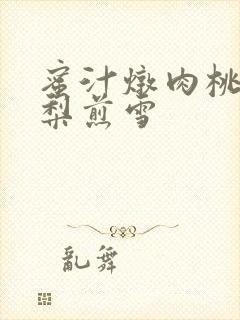 蜜汁燉肉桃
梨煎雪
亂舞